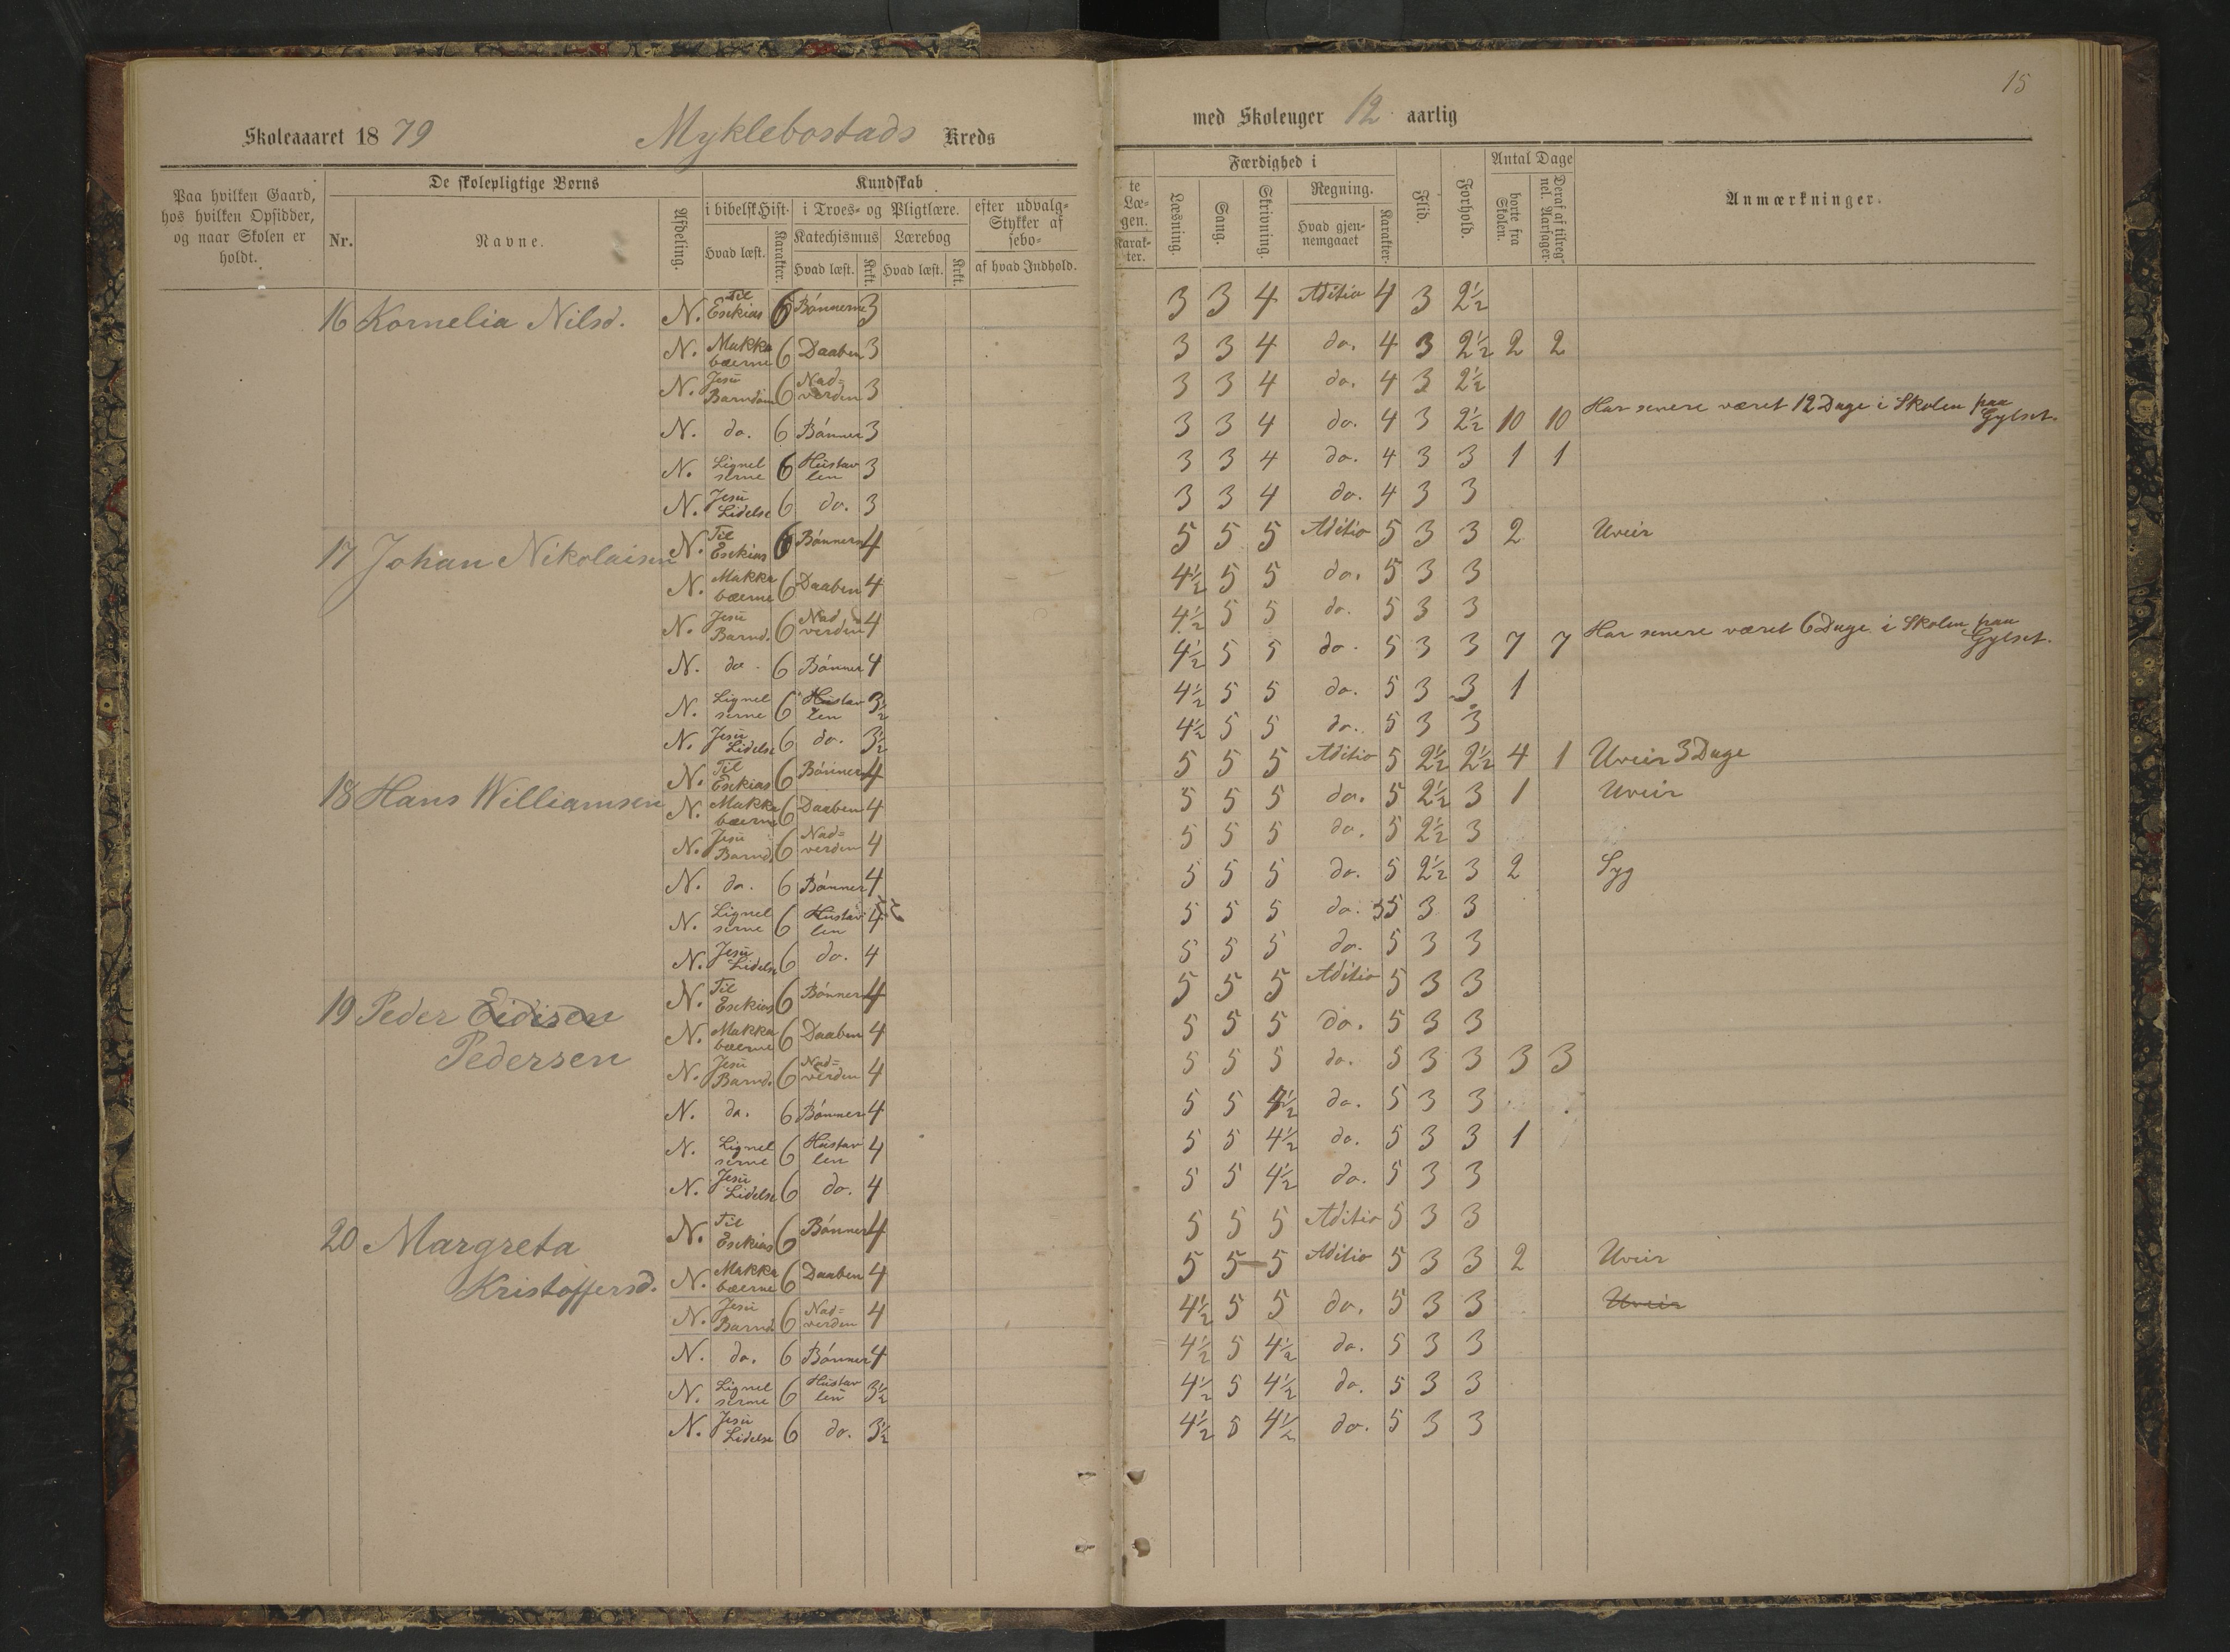 15
Skoleaaaret 1879 Myklebostads Kreds
med Skoleuger 12 aarlig
Paa hvilken Gaard, hos hvilken Opsidder, og naar Skolen er holdt.
De skolepligtige Børns
Nr.
Navne.
Afdeling.
Kundskab
i bibelsk Hist.
Hvad læst.
Karakter.
i Troes- og Pligtlære.
Katechismus
Hvad læst.
Krkt.
Lærebog
Hvad læst.
Krkt.
efter udvalg-
Stykker af
sebo-
af hvad Indhold.
te
Læ-
gen.
Karak-
ter.
Færdighed i
Læsning.
Sang.
Skrivning.
Regning.
Hvad gjen-
nemgaaet
Karakter.
Flid.
Forhold.
Antal Dage
borte fra Skolen.
Deraf af tilreg-
nel. Aarsager.
Anmærkninger.
16 Kornelia Nilsd. N. Til Esekias 6 Bönnerne 3 3 3 4 Aditio 4 3 2½
N. Makkabæerne 6 Daaben 3 3 3 4 do. 4 3 2½ 2 2
N. Jesu Barndom 6 Nad=verden 3 3 3 4 do. 4 3 2½
N. do. 6 Bönner 3 3 3 4 do. 4 3 2½ 10 10 Har senere været 12 Dage i Skolen paa Gylset.
N. Lignelserne 6 Hustavlen 3 3 3 4 do. 4 3 3 1 1
N. Jesu Lidelse 6 do. 3 3 3 4 do. 4 3 3
17 Johan Nikolaisen N. Til Esekias 6 Bönnern 4 5 5 5 Aditio 5 3 3 2 Uveir
N. Makkabæerne 6 Daaben 4 4½ 5 5 do. 5 3 3
N. Jesu Barnd. 6 Nadverden 4 4½ 5 5 do. 5 3 3
N. do. 6 Bönner 4 4½ 5 5 do. 5 3 3 7 7 Har senere været 6 Dage i Skolen paa Gylset.
N. Lignelserne 6 Hustavlen 3½ 4½ 5 5 do. 5 3 3 1
N. Jesu Lidelse 6 do. 3½ 4½ 5 5 do. 5 3 3
18 Hans Williamsen N. Til Esekias 6 Bönner 4 5 5 5 Aditio 5 2½ 2½ 4 1 Uveir 3 Dage
N. Makkabæerne 6 Daaben 4 5 5 5 do. 5 2½ 3 1 Uveir
N. Jesu Barnd. 6 Nad=verden 4 5 5 5 do. 5 2½ 3
N. do. 6 Bönner 4 5 5 5 do. 5 2½ 3 2 Syg
N. Lignelserne 6 Hustavlen 4 5 5 5 do. 5 3 3
N. Jesu Lidelse 6 do. 4 5 5 5 do. 5 3 3
19 Peder Eidisen Pedersen N. Til Esekias 6 Bönner 4 5 5 5 Aditio 5 3 3
N. Makkabæerne 6 Daaben 4 5 5 5 do. 5 3 3
N. Jesu Barnd. 6 Nad=verden 4 5 5 5 do. 5 3 3 3 3
N. do. 6 Bönner 4 5 5 4½ do. 5 3 3
N. Lignelserne 6 Hustavlen 4 5 5 4½ do. 5 3 3 1
N. Jesu Lidelse 6 do. 4 5 5 4½ do. 5 3 3
20 Margreta Kristoffersd. N. Til Esekias 6 Bönner 4 5 5 5 Aditio 5 3 3
N. Makkabæerne 6 Daaben 4 5 5 5 Aditio 5 3 3 2 Uveir
N. Jesu Barnd. 6 Nad=verden 4 4½ 5 5 do. 5 3 3 Uveir
N. do. 6 Bönner 4 4½ 5 4½ do. 5 3 3
N. Lignelserne 6 Hustavlen 3½ 4½ 5 4½ do. 5 3 3
N. Jesu Lidelse 6 do. 3½ 4½ 5 4½ do. 5 3 3